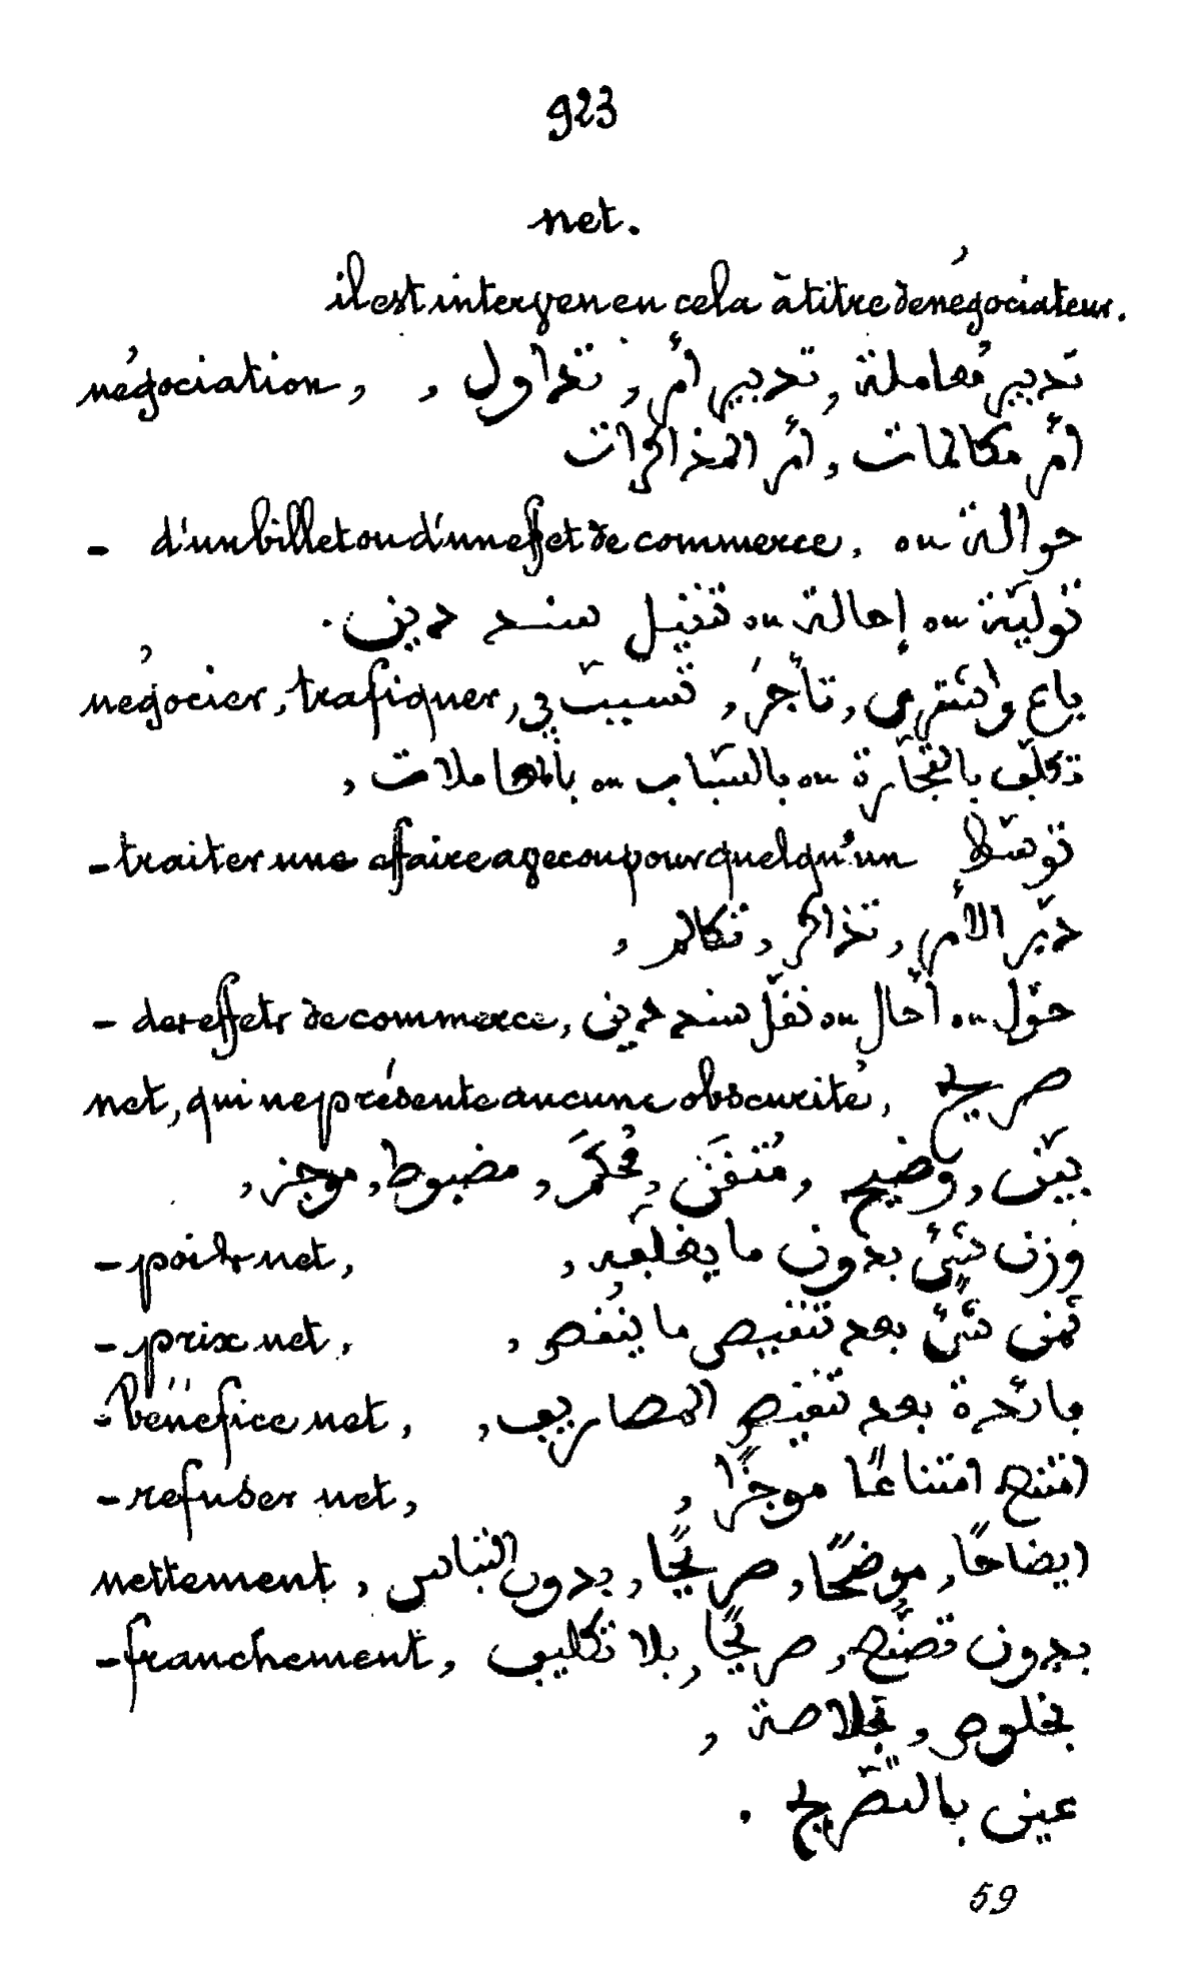 923
net.
il est intervenu en cela à titre de négociateur.
négociation, تدبير مُعاملة, تدبير أمر, تداول,
أمر مكالمات, أمر المذاكرات
- d'un billet ou d'un effet de commerce, ou حوالة
توليّة ou إحالة ou تنفيل سند دين.
négocier, trafiquer, باع واشترى, تأجرَ, تسبّب في,
تكلّف بالتجّارة ou بالسّباب ou بالمعاملات,
- traiter une affaire avec ou pour quelqu'un توسّلا
دبّر الأمر, تذاكر, تكالم,
- des effets de commerce, حوّل ou أحال ou نفّل سند دين
net, qui ne présente aucune obscurité, صريح
بيّن, وضيح, مُتقَن, مُحكَم, مضبوط, موجز,
- poids net, وزن شئ بدون ما يغلّفه,
- prix net, ثمن شئ بعد تنقيص ما ينقص,
- bénéfice net, فائدة بعد تنقيص المصاريف,
- refuser net, امتنع امتناعًا موجزًا,
nettement, ايضاحًا, موضحًا, صريحًا, بدون التباس,
- franchement, بدون تصنّع, صريحًا, بلا تكليف
بخلوص, بخلاصة,
عينى بالتّصريح.
59